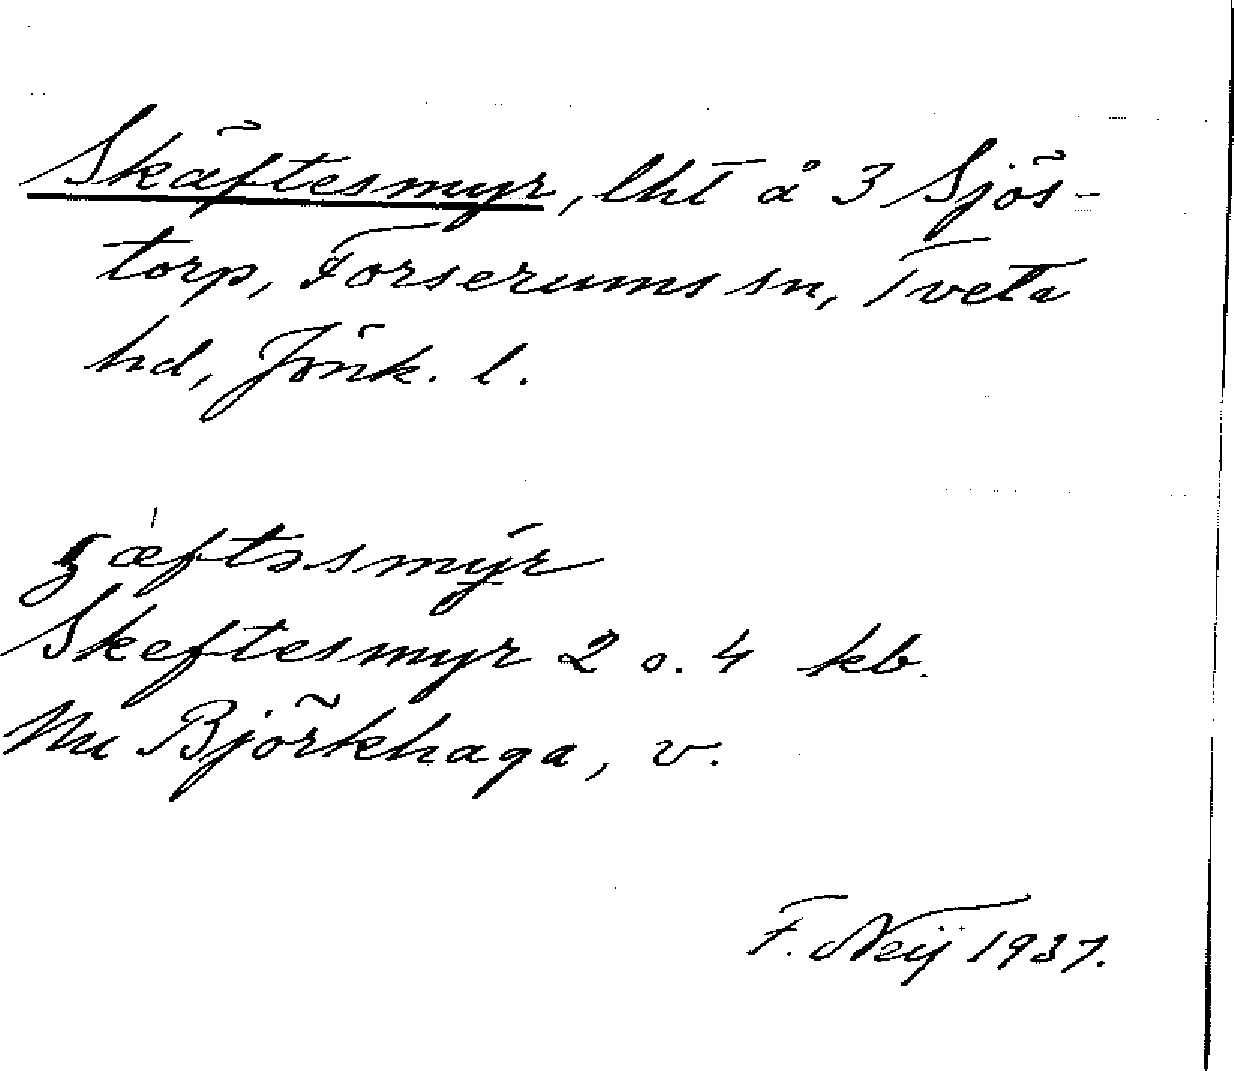 Skäftesmyr, lht å 3 Sjös-
torp, Forserums sn, Tveta
hd, Jönk. l.
Skeftesmyr 2 o. 4 kb.
Nu Björkhaga, v.
F. Neij 1937.